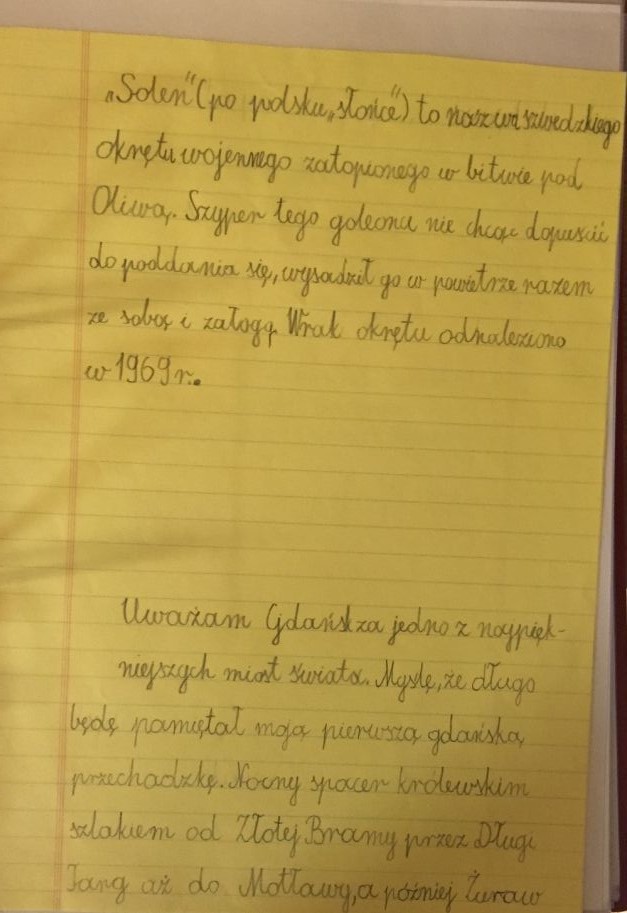 „Solen"(po polsku „słońce") to nazwa szwedzkiego
okrętu wojennego zatopionego w bitwie pod
Oliwą. Szyper tego galeonu nie chcąc dopuścić
do poddania się, wysadził go w powietrze razem
ze sobą i załogą. Wrak okrętu odnaleziono
w 1969 r.
Uważam Gdańsk za jedno z najpięk-
niejszych miast świata. Myślę, że długo
będę pamiętał moją pierwszą gdańską
przechadzkę. Nocny spacer królewskim
szlakiem od Złotej Bramy przez Długi
Targ aż do Motławy, a później Żuraw